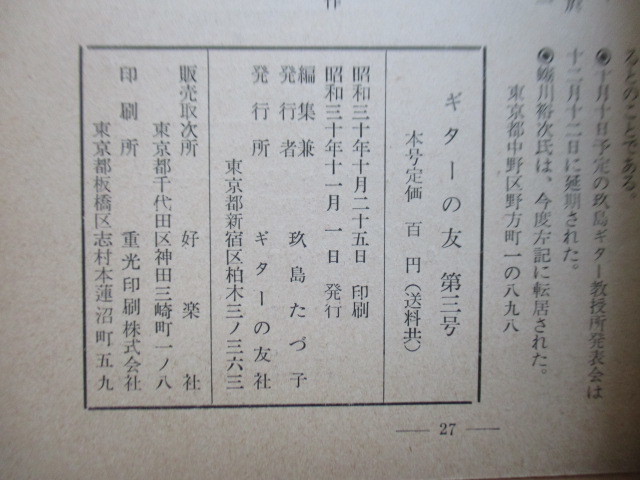 るとのことである。
◉十月十日予定の玖島ギター教授所発表会は
十二月十二日に延期された。
川裕次氏は、今度左記に転居された。
東京都中野区野方町一の八九八
ギターの友 第三号
本号定価 百円(送料共)
昭和三十年十月二十五日 印刷
昭和三十年十一月一日 発行
編集兼
発行者 玖島たづ子
発行所 ギターの友社
東京都新宿区柏木三ノ三六三
販売取次所 好楽社
東京都千代田区神田三崎町一ノ八
印刷所 重光印刷株式会社
東京都板橋区志村本蓮沼町五九
— 27 —